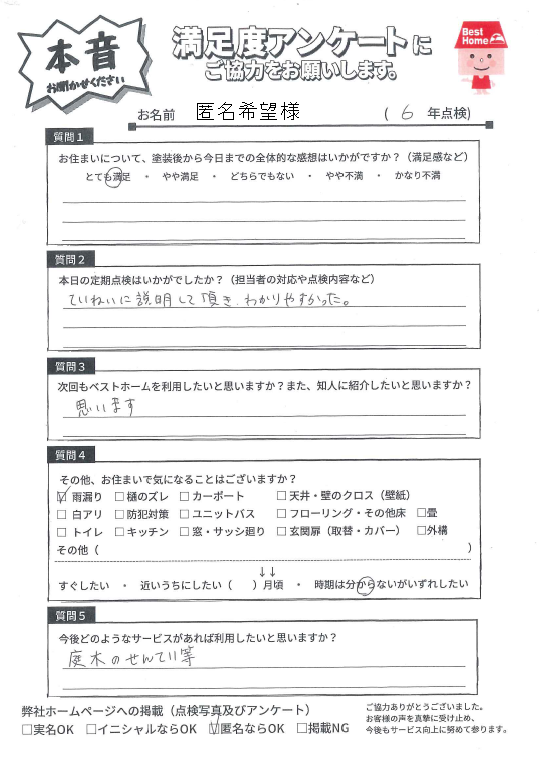 本音
お聞かせください
満足度アンケートに
ご協力をお願いします。
Best Home
お名前 匿名希望様 ( 6 年点検)
質問1
お住まいについて、塗装後から今日までの全体的な感想はいかがですか？（満足感など）
とても満足 ・ やや満足 ・ どちらでもない ・ やや不満 ・ かなり不満
質問2
本日の定期点検はいかがでしたか？（担当者の対応や点検内容など）
ていねいに説明して頂き、わかりやすかった。
質問3
次回もベストホームを利用したいと思いますか？また、知人に紹介したいと思いますか？
思います
質問4
その他、お住まいで気になることはございますか？
☑雨漏り □樋のズレ □カーポート □天井・壁のクロス（壁紙）
□白アリ □防犯対策 □ユニットバス □フローリング・その他床 □畳
□トイレ □キッチン □窓・サッシ廻り □玄関扉（取替・カバー） □外構
その他（ ）
↓↓
すぐしたい ・ 近いうちにしたい（ ）月頃 ・ 時期は分からないがいずれしたい
質問5
今後どのようなサービスがあれば利用したいと思いますか？
庭木のせんてい等
弊社ホームページへの掲載（点検写真及びアンケート）
□実名OK □イニシャルならOK ☑匿名ならOK □掲載NG
ご協力ありがとうございました。
お客様の声を真摯に受け止め、
今後もサービス向上に努めて参ります。